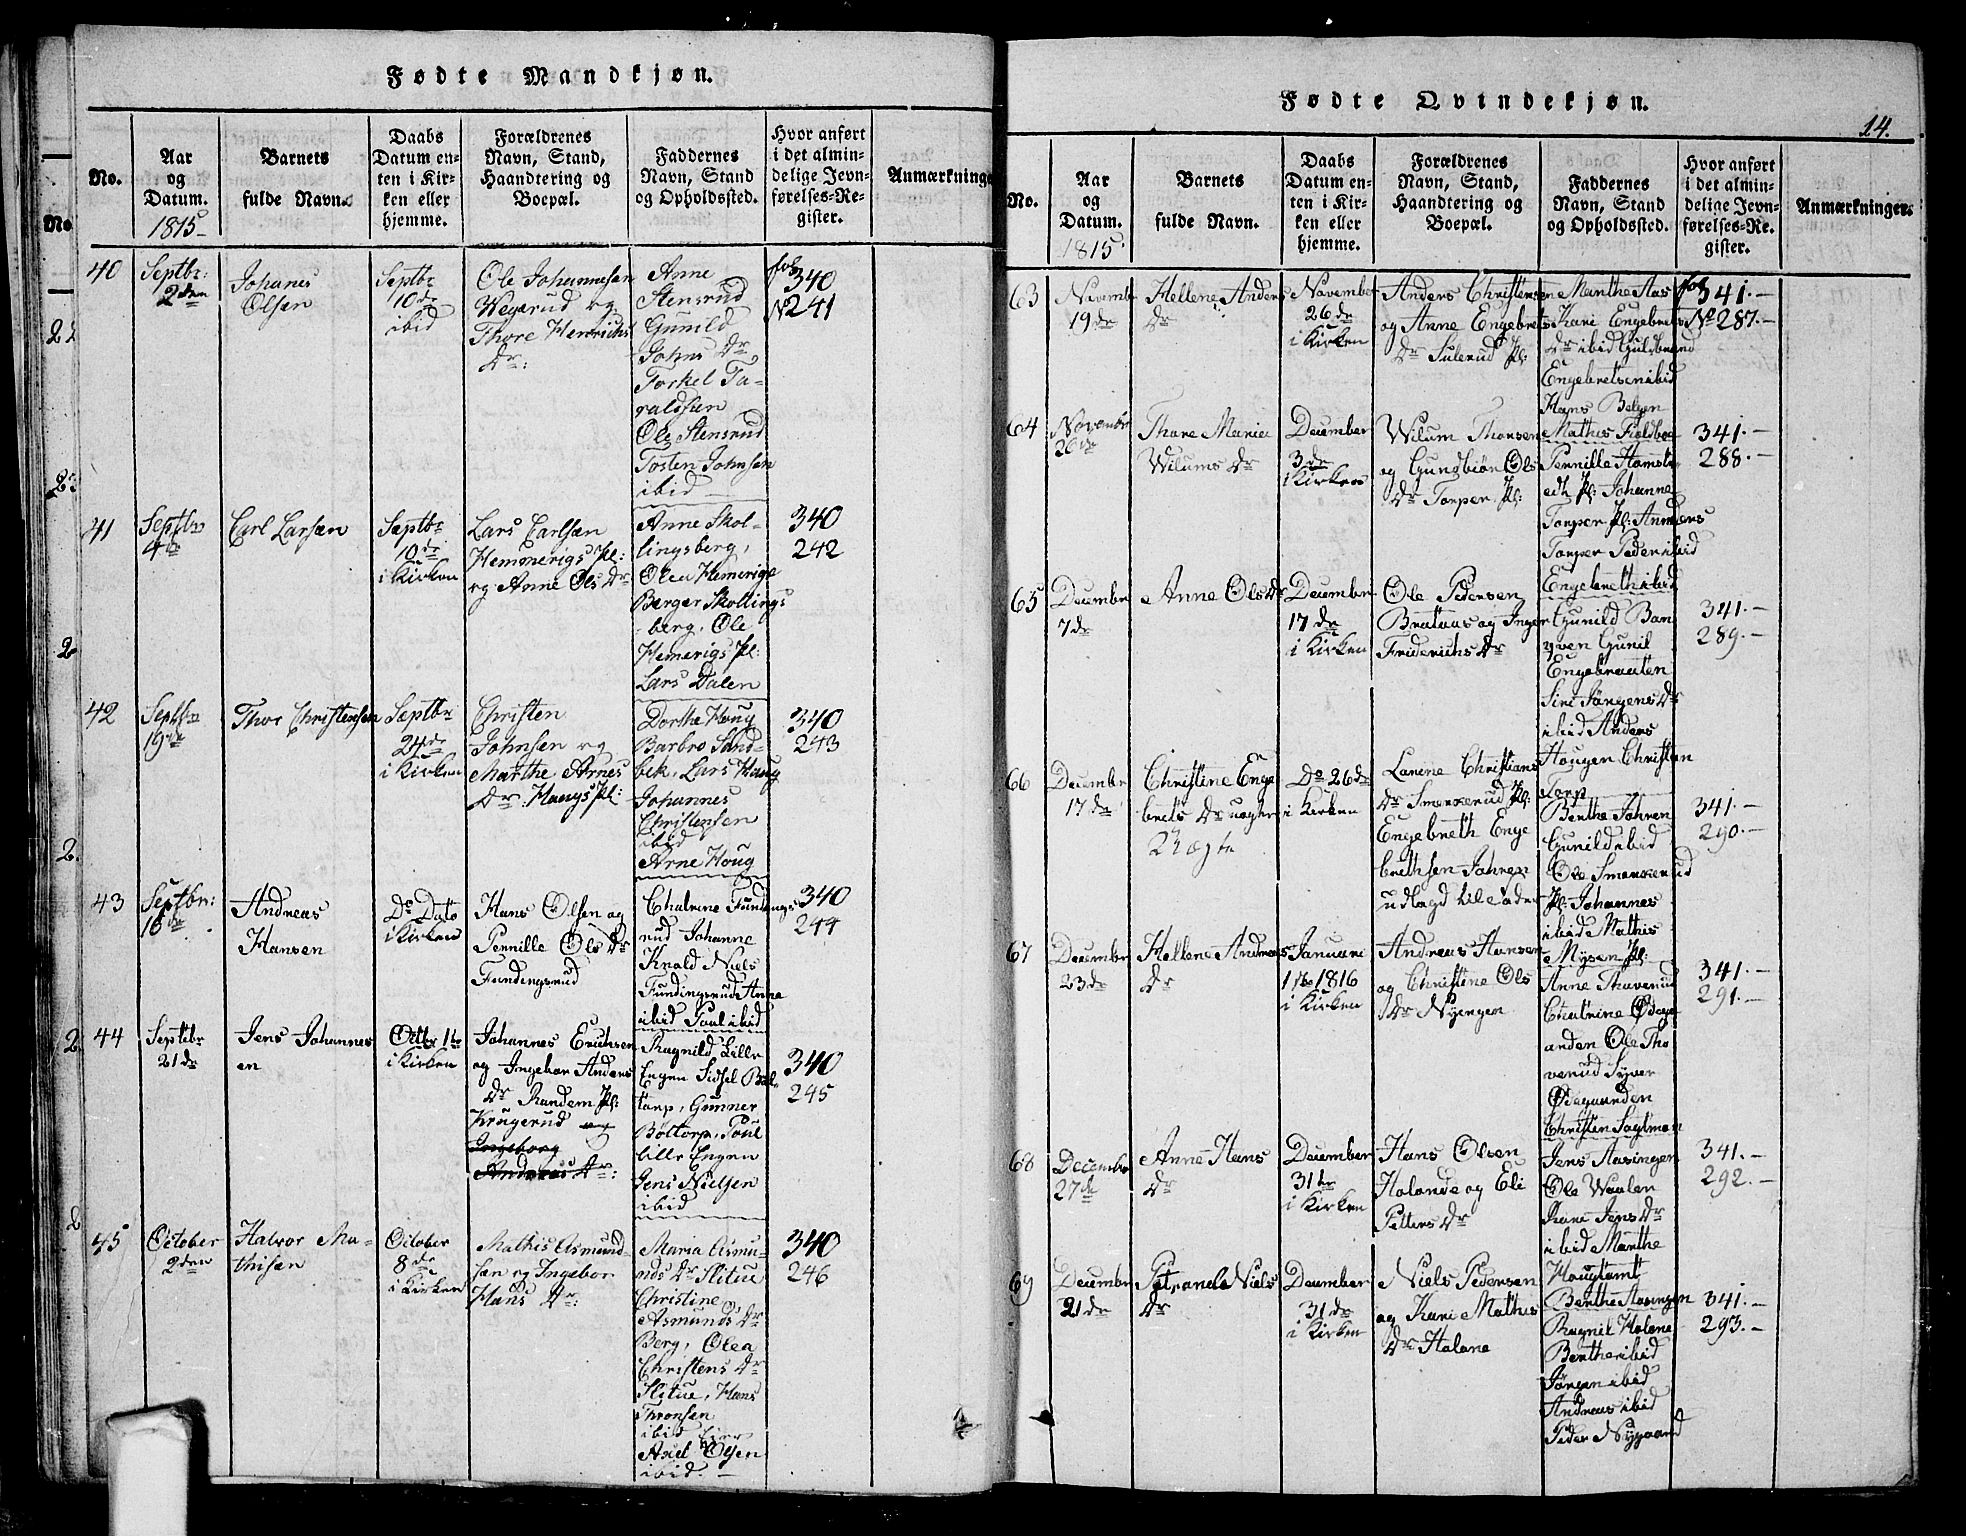 Fødte Mandkjøn.
No.
Aar
og
Datum.
1815
Barnets
fulde Navn.
Daabs
Datum en-
ten i Kir-
ken eller
hjemme.
Forældrenes
Navn, Stand,
Haandtering og
Boepæl.
Faddernes
Navn, Stand
og Opholdssted.
Hvor anført
i det almin-
delige Jevn-
førelses-Re-
gister.
Anmærkninger
40
Septbr:
2den
Johanes
Olsen
Septbr
10de
ibid
Ole Johannesen
Wegerud og
Thore Henrichs
Dr:
Anne
Stensrud
Gunild
Johns Dr
Torkel Ta-
raldsen
Ole Stensrud
Tosten Johnsen
ibid
fol
340
N 241
41
Septbr
4de
Carl Larsen
Septbr
10de
i Kirken
Lars Carlsen
Hemmerigs Pl:
og Anne Ols Dr
Anne Skol-
lingsberg,
Olea Hemerigs
Berger Skollings
berg, Ole
Hemerigs Pl:
Lars Dalen
340
242
42
Septbr
19de
Thor Christensen
Septbr
24de
i Kirken
Christen
Johnsen og
Marthe Arnes
Dr: Haugs Pl:
Dorthe Houg
Barbro Sand-
bek, Lars Haug
Johannes
Christensen
ibid
Arne Houg
340
243
43
Septbr:
18de
Andreas
Hansen
Do Dato
i Kirken
Hans Olsen og
Pernille Ols Dr
Fundingsrud
Chatrine Fundings
rud Johanne
Knold Niels
Fundingsrud Anne
ibid Poul ibid
340
244
44
Septbr
21de
Jens Johannes
en
Octbr 1te
i Kirken
Johannes Erichsen
og Ingebor Anders
Dr Randem Pl:
Krugerud og
Ingeborg
Anderes Dr:
Ragnild Lille
Engen Sidsel Böl
torp, Gunner
Böltorp, Poul
lille Engen
Jens Nielsen
ibid
340
245
45
October
2den
Halvor Ma-
thisen
October
8de
i Kirken
Mathis Asmund-
sen og Ingebor
Hans Dr:
Maria Asmu-
nds Dr Slitue
Christine
Asmunds Dr
Berg, Olea
Christens Dr
Slitue, Hans
Thronsen
ibid Eier
Axel Olsen
ibid.
340
246
Fødte Qvindekjøn.
14.
No.
Aar
og
Datum.
1815
Barnets
fulde Navn.
Daabs
Datum en-
ten i Kir-
ken eller
hjemme.
Forældrenes
Navn, Stand,
Haandtering og
Boepæl.
Faddernes
Navn, Stand
og Opholdssted.
Hvor anført
i det almin-
delige Jevn-
førelses-Re-
gister.
Anmærkninger.
63
Novembr
19de
Hellene Anders
Dr
November
26de
i Kirken
Anders Christensen
og Anne Engebrets
Dr Sulerud Pl:
Marthe Aas
Kari Engebrets
Dr ibid Guldbrand
Engebretsen ibid
Hans Belgen
fol
341.
No 287.
64
Novembr
26de
Thore Maria
Wilums Dr
December
3de
i Kirken
Wilum Thorsen
og Gundbiør Ols
Dr Torper Pl:
Mathis Fieldboe
Pernille Homst
edt Pl: Johanne
Torper Pl: Anders
Torper Peder ibid
Engebreth ibid
341.
288.
65
Decembr
7de
Anne Ols Dr
December
17de
i Kirken
Ole Pedersen
Brataas og Inger
Friderichs Dr
Gunild Ban
gven Gunil
Engebraaten
Siri Jörgens Dr
ibid Anders
Hougen Christen
Torp
341.
289.
66
Decembr
17de
Christine Enge
brets Dr uægte
2 Uægte
Do 26de
i Kirken
Larine Christians
Dr Smerkerud Pl:
Engebreth Enge
brethsen Jahren
udlagd til Fader
Berthe Jahren
Gunild ibid
Ole Smerkerud
Pl: Johannes
ibid Mathis
Mysen Pl:
341.
290.
67
Decembr
23de
Hellene Andreas
Dr
Januari
1te 1816
i Kirken
Andreas Hansen
og Christine Ols
Dr Nyengen
Anne Thaverud
Chatrine Ødega
anden Ole Tho
verud Syver
Ødegaarden
Christen Saglmon
341.
291.
68
December
27de
Anne Hans
Dr
December
31te
i Kirken
Hans Olsen
Holande og Eli
Petters Dr
Jens Aasingen
Ole Waalen
Kari Jens Dr
ibid Marthe
Hougtomt
341.
292.
69
Decembr
21de
Petronele Niels
Dr
December
31de
i Kirken
Niels Pedersen
og Kari Mathis
Dr Holene
Berthe Aasingen
Ragnil Holene
Berthe ibid
Jörgen ibid
Andreas ibid
Peder Nygaard
341.
293.